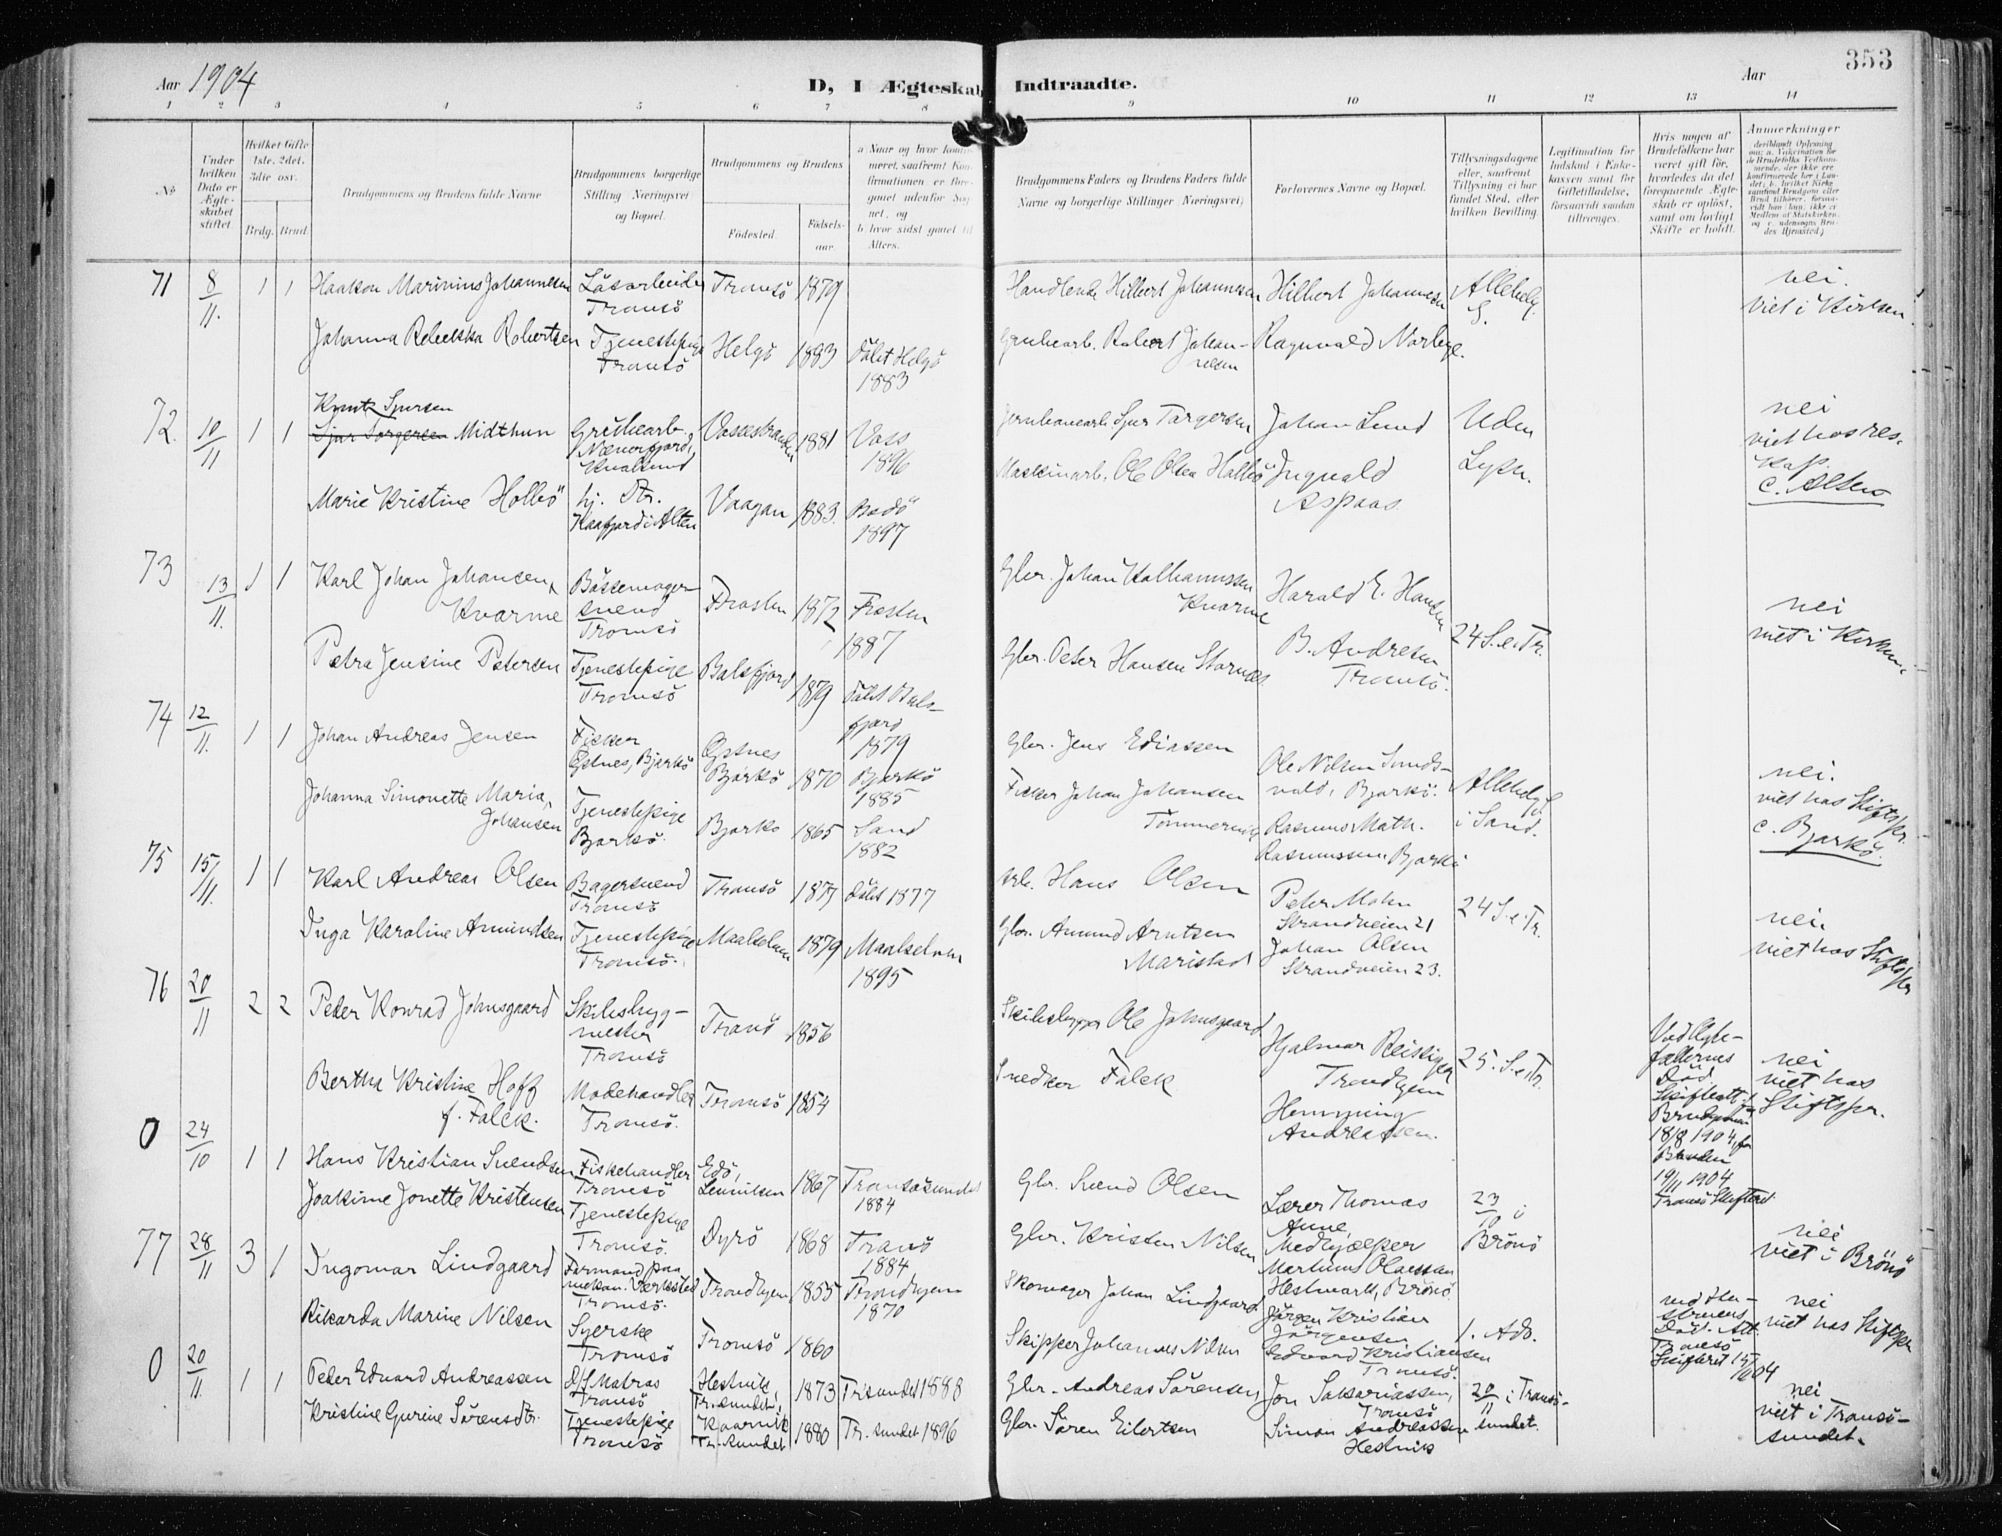 Aar 1904
D, I Ægteskab Indtraadte.
Aar
353
1 2 3 4 5 6 7 8 9 10 11 12 13 14
No
Under hvilken Dato er Ægteskabet stiftet
Hvilket Gifte 1ste. 2det. 3die osv.
Brdg. Brud.
Brudgommens og Brudens fulde Navne
Brudgommens borgerlige Stilling Næringsvei og Bopæl.
Brudgommens og Brudens
Födested.
Födselsaar.
a Naar og hvor
b hvor sidst gaaet til Alters.
Brudgommens Faders og Brudens Faders fulde Navne og borgerlige Stillinger Næringsvei;
Forlovernes Navne og Bopæl.
Tillysningsdagene eller, saafremt Tillysning ei har fundet Sted, efter hvilken Bevilling.
Legitimation for Indskud i Enkekassen samt for Giftetilladelse, forsaavidt saadan tiltrænges.
Hvis nogen af Brudefolkene har været gift för, hvorledes da det foregaaende Ægteskab er oplöst, samt om lovligt Skifte er holdt.
Anmerkninger
71 8/11. 1 1 Haakon Marinius Johannesen Lösarbeider Tromsö Tromsö 1879 Handlende Hilbert Johannesen Hilbert Johannesen Allehelg. S. nei. viet i Kirken.
Johanna Rebekka Robertsen Tjenestepige Tromsö Helgö 1883 Döbt Helgö 1883 Grubearb. Robert Johannessen Ragnvald Norbye.
72. 10/11 1 1 Knut Sjursen Sjur Torgersen Midthun Grubearb. Kvalsund Vossestranden 1881 Voss 1896 Jernbanearb. Sjur Torgersen Johan Lund Uden Lysn. nei viet hos res. Kap. c. Alten
Marie Kristine Holbö hj. Dtr. Kaafjord i Alten Vaagan 1883. Bodö 1897 Maskinarb. Ole Olsen Holbö Ingvald Aspaas
73 13/11. 1 1 Karl Johan Johansen Kvarme Bössemager svend Tromsö Frosten 1872 Frosten 1887 Gbr. Johan Kvarme Harald E. Hansen 24 S. e. Tr. nei viet i Kirken
Petra Jensine Petersen Tjenestepige Tromsö Balsfjord 1879 Döbt Balsfjord 1879 Gbr. Peter Hansen Stornes B. Andresen Tromsö.
74 12/11. 1 1 Johan Andreas Jensen Fisker Bjarkö Bjarkö 1870 Bjarkö 1885 Gbr. Jens Ediassen Ole Nilsen Sundsvald, Bjarkö. Allehelg. S. i Sand. nei. viet hos Stiftspr. c. Bjarkö.
Johanna Simonette Maria Johansen Tjenestepige Bjarkö. Bjarkö 1865 Sand 1882 Fisker Johan Johansen Rasmus Math. Rasmussen, Bjarkö
75 15/11. 1 1 Karl Andreas Olsen Bagersvend Tromsö Tromsö 1877 Döbt 1877 Arb. Hans Olsen Peter Mohn Strandveien 21 24 S. e. Tr. nei. viet hos Stiftspr
Inga Karoline Amundsen Tjenestepige Tromsö. Maalselven 1879 Maalselven 1895 Gbr. Amund Arntsen Maristad Johan Olsen Strandveien 23.
76 20/11 2 2 Peder Konrad Johnsgaard Skibsbygmester Tromsö Tranö 1856 Skibsbygger Ole Johnsgaard Hjalmar Reisiger Trondhjem 25. S. e. Tr. Ved Ægtefællernes Död. Skifteatt. f. Brudgommen 18/8 1904, for Bruden 19/11 1904 Tromsö Skifteret nei viet hos Stiftspr.
Bertha Kristine Hoff f. Falck. Modehandler Tromsö. Tromsö 1854 Snedker Falck Henning Andreassen.
0 24/10 1 1 Hans Kristian Svendsen Fiskehandler Tromsö Edö, 1867 Tromsösundet 1884 Gbr. Svend Olsen Lærer Thomas 23/10 i Brönö nei viet i Brönö
Joakime Jonette Kristensen Tjenestepige Tromsö. Dyrö 1868 Tranö 1884 Gbr. Kristen Nilsen Medhjælper Martinus Olaussen Brönö
77 28/11 3 1 Ingomar Lindgaard Formand paa mekan. Verksted Tromsö. Trondhjem 1855 Trondhjem 1870 Skomager Johan Lindgaard Jörgen Kristian Jörgensen 1. Adv. ved Hustruens Död. Att. Tromsö Skifteret 1904 nei viet hos Stiftspr
Rikarda Marine Nilsen Syerske Tromsö Tromsö 1860 Skipper Johannes Nilsen Edvard Kristiansen Tromsö.
0 20/11. 1 1 Peder Edvard Andreassen Matros Tromsö Hestvik, Tr.sundet, 1873 Tr.sundet 1888 Gbr. Andreas Sörensen Jon Sakariassen, Tromsö 20/11 i Tromsösundet. nei viet i Tromsösundet.
Kristine Gurine Sörensdtr. Tjenestepige Tromsö Tr.sundet 1880 Tr.sundet 1896 Gbr. Sören Eilertsen Simon Andreassen Hestvik